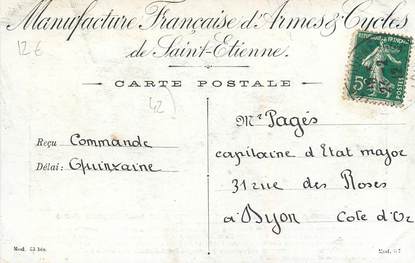 Manufacture Française d'Armes & Cycles
de Saint-Etienne.
12€
CARTE POSTALE
42)
Reçu Commande
Délai: Quinzaine
Mr Pagés
capitaine d'Etat major
31 rue des Roses
à Dijon Cote d'Or
Mod. 53 bis.